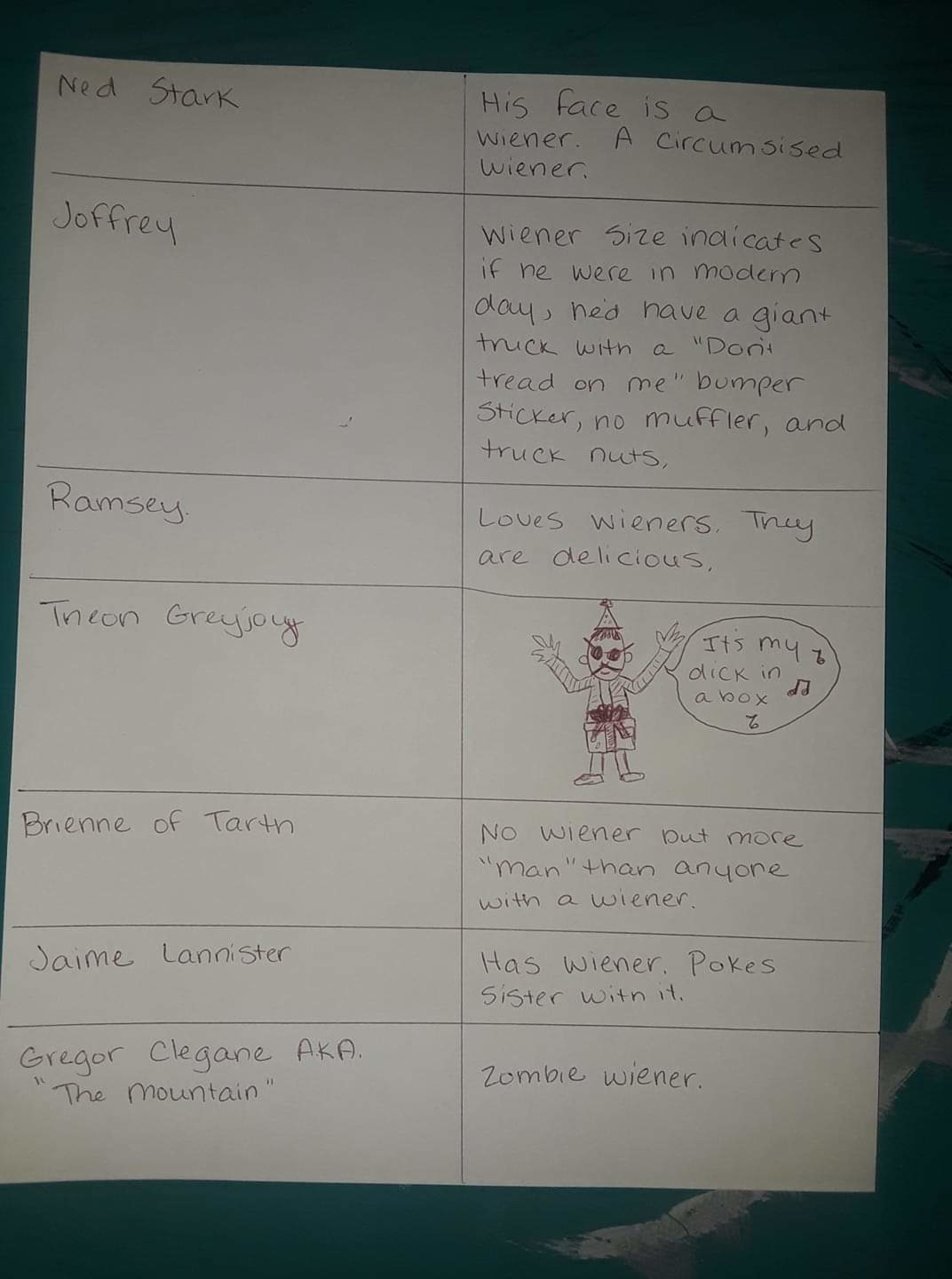 Ned Stark
His face is a
wiener. A circumsised
wiener.
Joffrey
Wiener size indicates
if he were in modern
day, he'd have a giant
truck with a "Don't
tread on me" bumper
sticker, no muffler, and
truck nuts.
Ramsey.
Loves wieners. They
are delicious.
Theon Greyjoy
It's my
dick in
a box
Brienne of Tarth
No wiener but more
"man" than anyone
with a wiener.
Jaime Lannister
Has wiener. Pokes
sister with it.
Gregor Clegane AKA.
"The Mountain"
Zombie wiener.